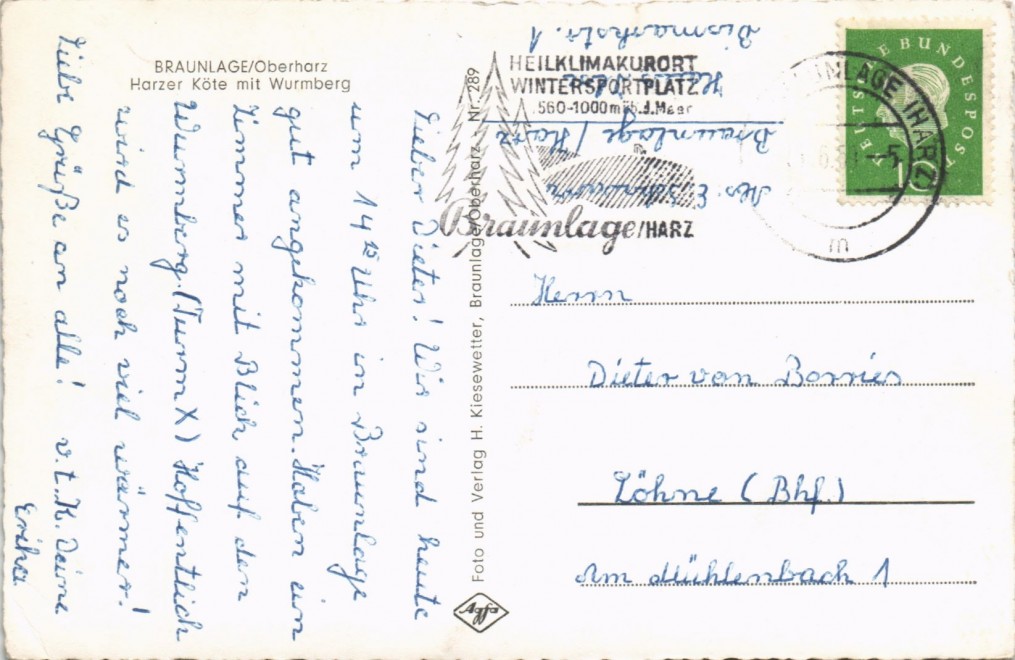 BRAUNLAGE/Oberharz
Harzer Köte mit Wurmberg
Lieber Dieter! Wir sind heute
um 14 15 Uhr in Braunlage
gut angekommen. Haben ein
Zimmer mit Blick auf den
Wurmberg. (Turm X) Hoffentlich
wird es noch viel wärmer!
Liebe Grüße an alle! v. t. K. Deine
Erika
Foto und Verlag H. Kiesewetter, Braunlage/Oberharz Nr. 289
Agfa
HEILKLIMAKURORT
WINTERSPORTPLATZ
560-1000 m üb.d.Meer
Braunlage/HARZ
Abs. E.
Braunlage / Harz
Haus
Bismarkstr. 1
BRAUNLAGE (HARZ)
m
DEUTSCHE BUNDESPOST
10
Herrn
Dieter von Borries
Löhne (Bhf.)
Am Mühlenbach 1